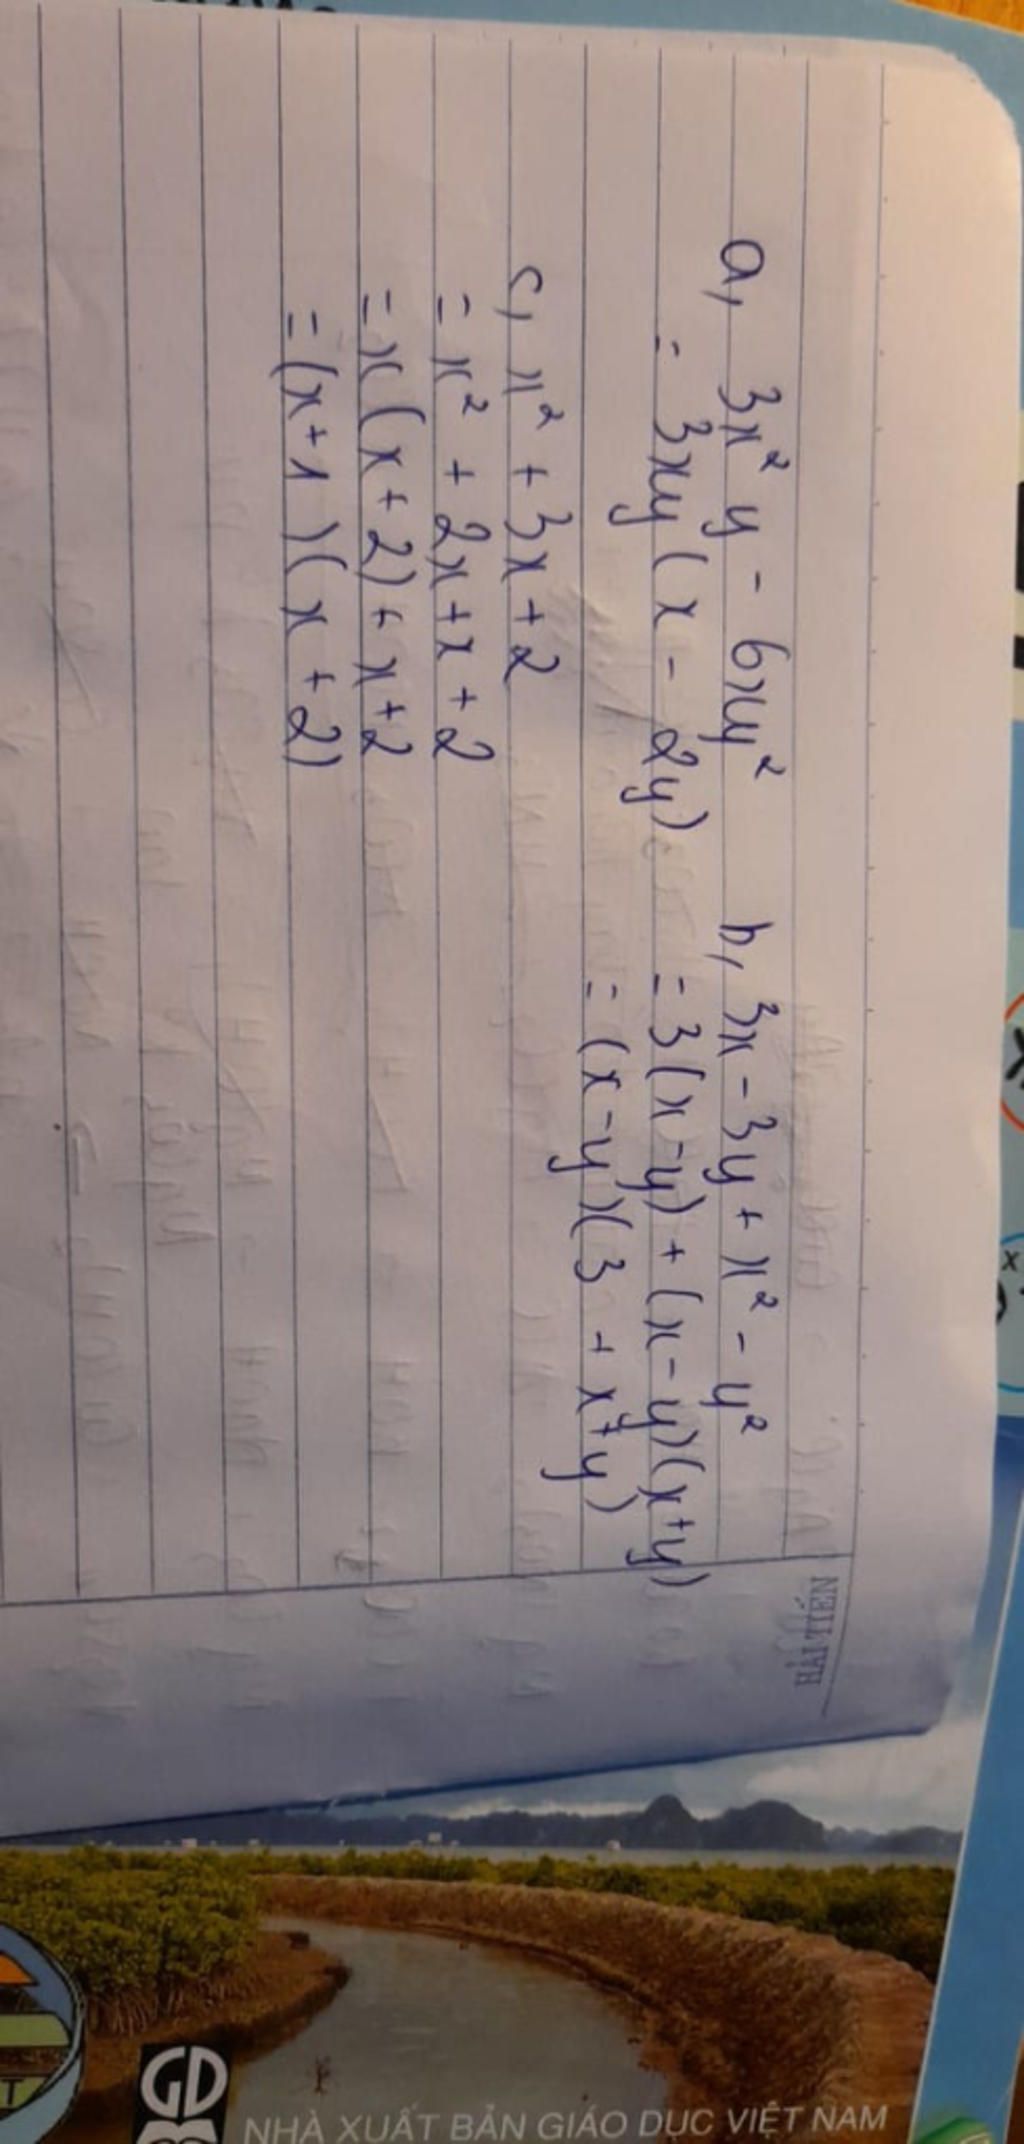 HẢI TIẾN
a, 3x² y - 6xy²
= 3xy (x - 2y)
b, 3x - 3y + x² - y²
= 3(x-y) + (x-y)(x+y)
= (x-y)(3 + x+y)
c, x² + 3x + 2
= x² + 2x + x + 2
= x (x+2) + x+2
= (x+1)(x+2)
GD
NHÀ XUẤT BẢN GIÁO DỤC VIỆT NAM